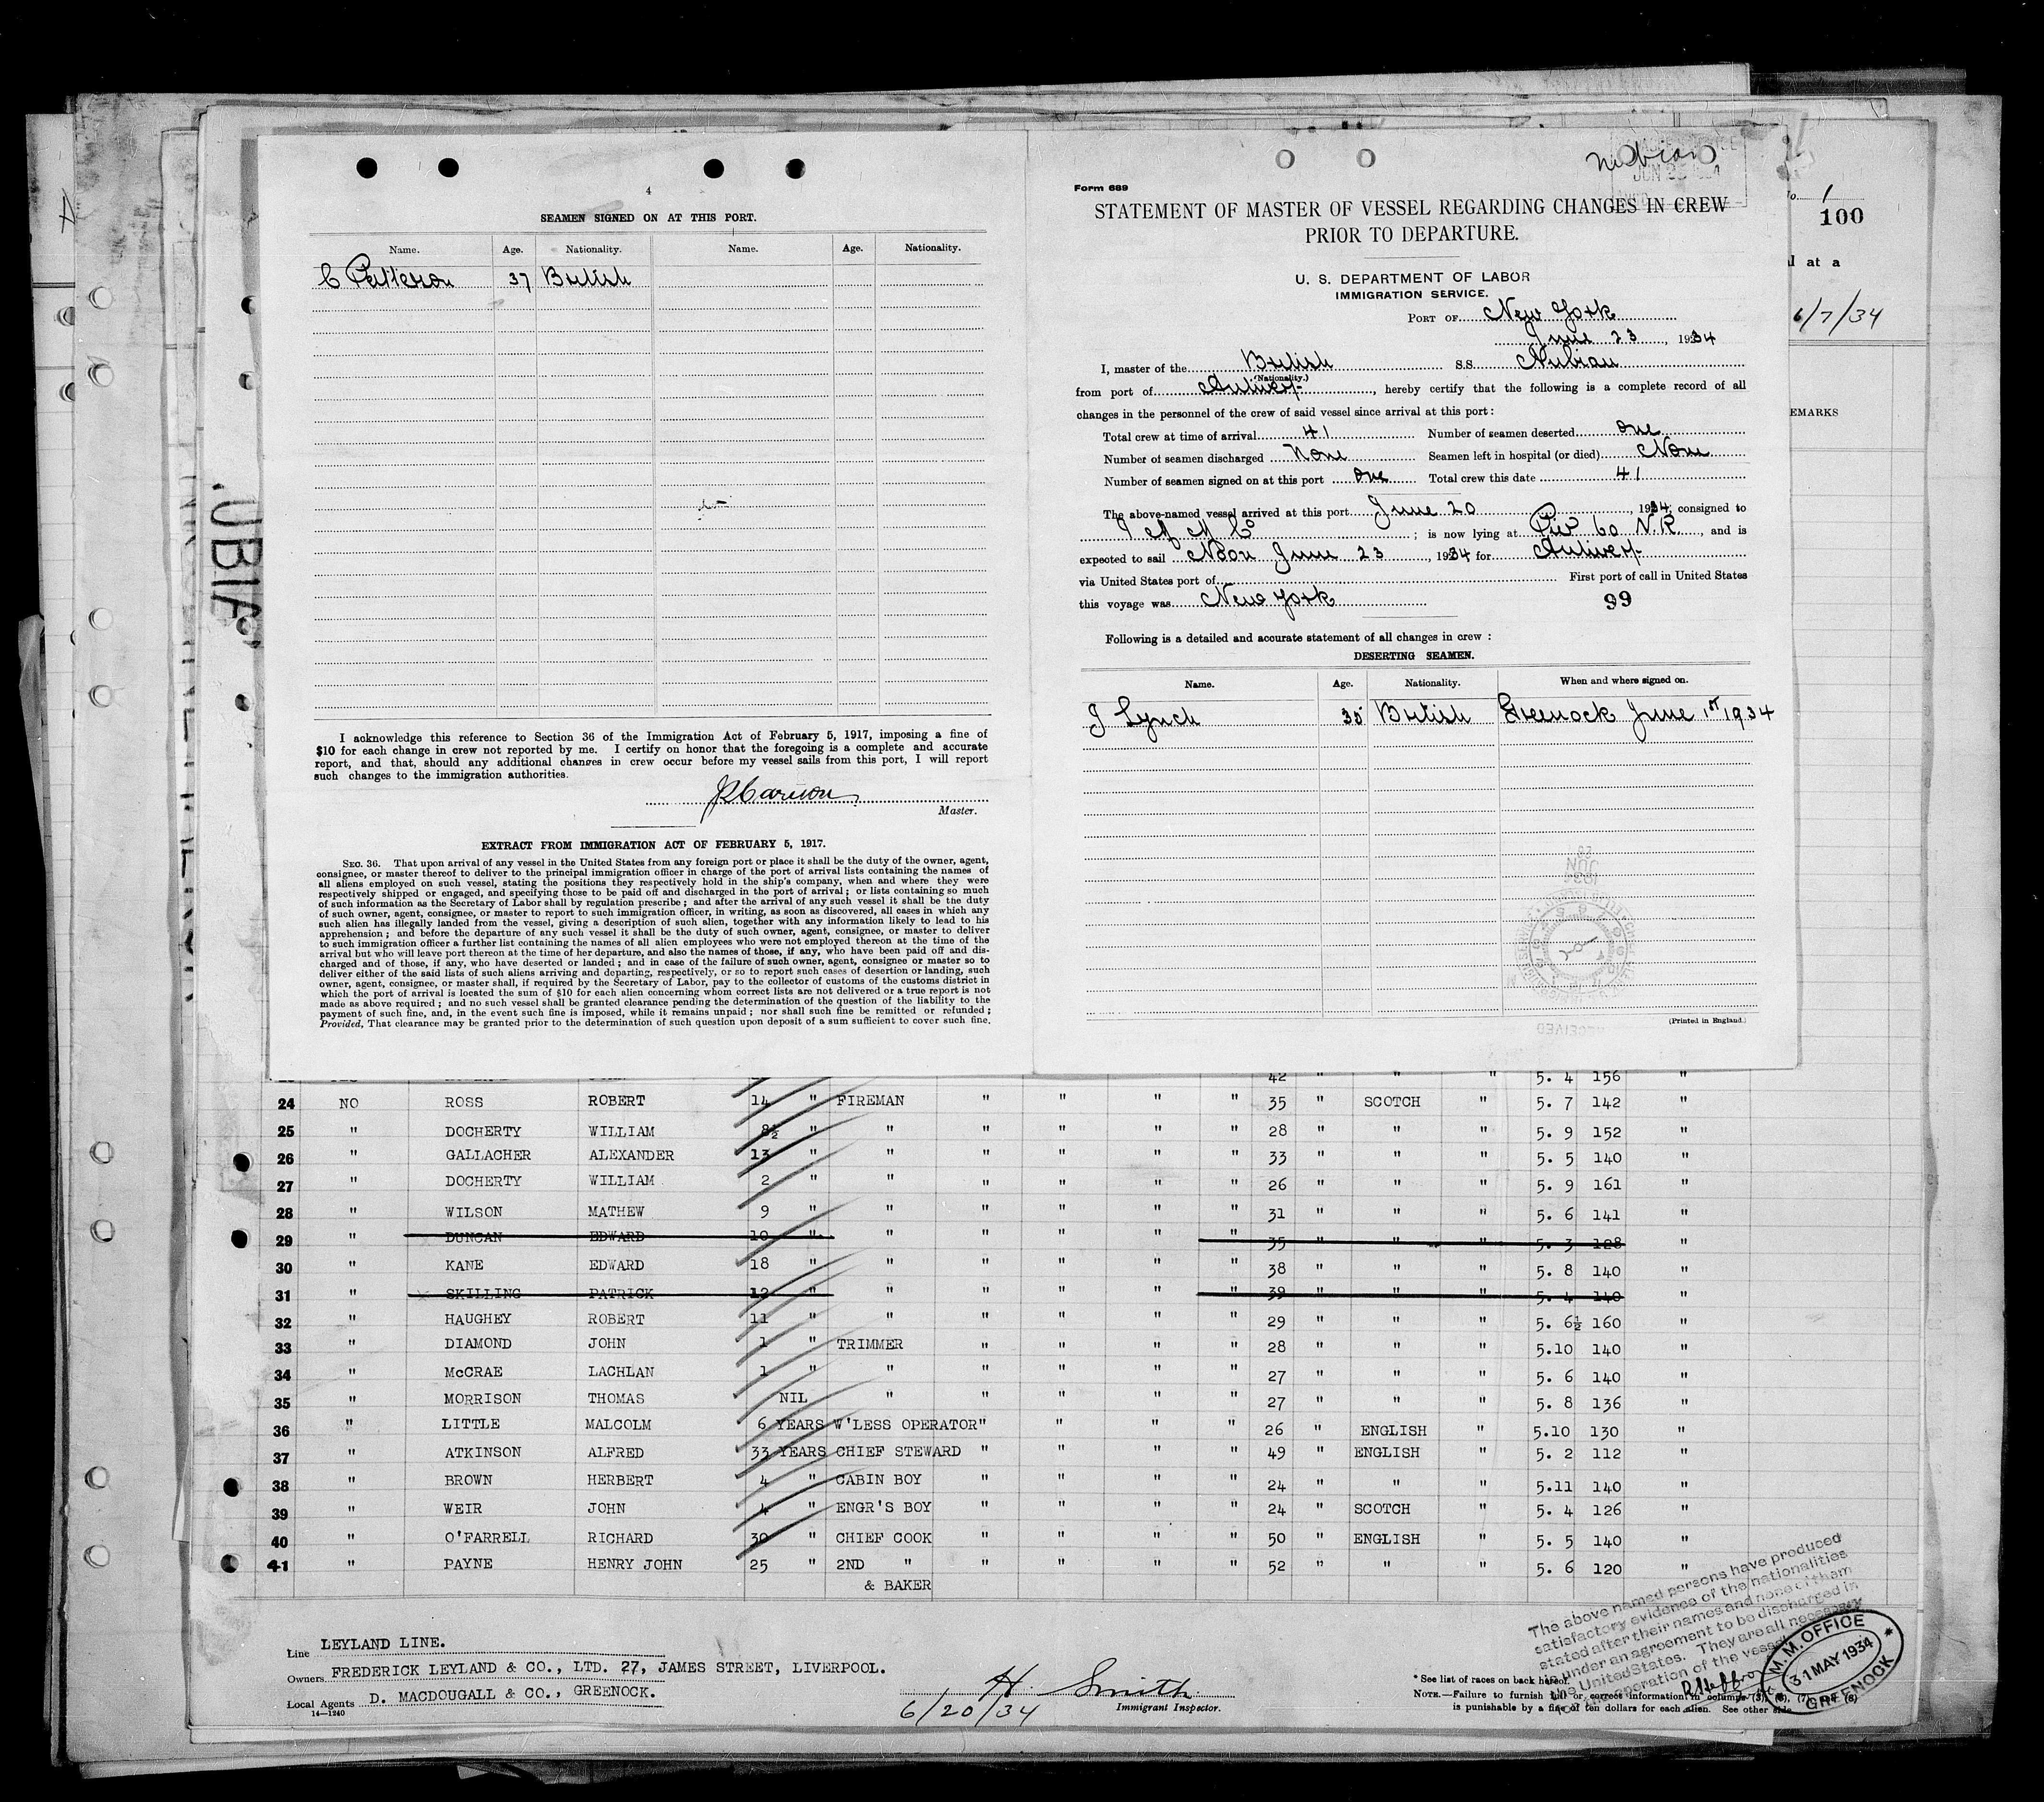 4
SEAMEN SIGNED ON AT THIS PORT.
Name. Age. Nationality. Name. Age. Nationality.
C Patterson 37 British
I acknowledge this reference to Section 36 of the Immigration Act of February 5, 1917, imposing a fine of
$10 for each change in crew not reported by me. I certify on honor that the foregoing is a complete and accurate
report, and that, should any additional changes in crew occur before my vessel sails from this port, I will report
such changes to the immigration authorities.
Master.
EXTRACT FROM IMMIGRATION ACT OF FEBRUARY 5, 1917.
SEC. 36. That upon arrival of any vessel in the United States from any foreign port or place it shall be the duty of the owner, agent,
consignee, or master thereof to deliver to the principal immigration officer in charge of the port of arrival lists containing the names of
all aliens employed on such vessel, stating the positions they respectively hold in the ship's company, when and where they were
respectively shipped or engaged, and specifying those to be paid off and discharged in the port of arrival; or lists containing so much
of such information as the Secretary of Labor shall by regulation prescribe; and after the arrival of any such vessel it shall be the duty
of such owner, agent, consignee, or master to report to such immigration officer, in writing, as soon as discovered, all cases in which any
such alien has illegally landed from the vessel, giving a description of such alien, together with any information likely to lead to his
apprehension; and before the departure of any such vessel it shall be the duty of such owner, agent, consignee, or master to deliver
to such immigration officer a further list containing the names of all alien employees who were not employed thereon at the time of the
arrival but who will leave port thereon at the time of her departure, and also the names of those, if any, who have been paid off and dis-
charged and of those, if any, who have deserted or landed; and in case of the failure of such owner, agent, consignee or master so to
deliver either of the said lists of such aliens arriving and departing, respectively, or so to report such cases of desertion or landing, such
owner, agent, consignee, or master shall, if required by the Secretary of Labor, pay to the collector of customs of the customs district in
which the port of arrival is located the sum of $10 for each alien concerning whom correct lists are not delivered or a true report is not
made as above required; and no such vessel shall be granted clearance pending the determination of the question of the liability to the
payment of such fine, and, in the event such fine is imposed, while it remains unpaid; nor shall such fine be remitted or refunded;
Provided, That clearance may be granted prior to the determination of such question upon deposit of a sum sufficient to cover such fine.
Nubian
Form 689
STATEMENT OF MASTER OF VESSEL REGARDING CHANGES IN CREW
PRIOR TO DEPARTURE.
U. S. DEPARTMENT OF LABOR
IMMIGRATION SERVICE.
PORT OF New York
June 23, 1934
I, master of the British S.S. Nubian
(Nationality.)
from port of Antwerp, hereby certify that the following is a complete record of all
changes in the personnel of the crew of said vessel since arrival at this port:
Total crew at time of arrival 41 Number of seamen deserted one
Number of seamen discharged None Seamen left in hospital (or died) None
Number of seamen signed on at this port one Total crew this date 41
The above-named vessel arrived at this port June 20, 1934; consigned to
I M M Co; is now lying at Pier 60 N.R, and is
expected to sail Noon June 23, 1934, for Antwerp
via United States port of First port of call in United States
this voyage was New York
99
Following is a detailed and accurate statement of all changes in crew:
DESERTING SEAMEN.
Name. Age. Nationality. When and where signed on.
J Lynch 35 British Greenock June 1st 1934
(Printed in England.)
No. 1
100
l at a
6/7/34
EMARKS
UBIA
42 " " " 5. 4 156 "
24 NO ROSS ROBERT 14 " FIREMAN " " " " 35 " SCOTCH " 5. 7 142 "
25 " DOCHERTY WILLIAM 8½ " " " " " " 28 " " " 5. 9 152 "
26 " GALLACHER ALEXANDER 13 " " " " " " 33 " " " 5. 5 140 "
27 " DOCHERTY WILLIAM 2 " " " " " " 26 " " " 5. 9 161 "
28 " WILSON MATHEW 9 " " " " " " 31 " " " 5. 6 141 "
29 " DUNCAN EDWARD 10 " " " " " " 35 " " " 5. 3 128 "
30 " KANE EDWARD 18 " " " " " " 38 " " " 5. 8 140 "
31 " SKILLING PATRICK 12 " " " " " " 39 " " " 5. 4 140 "
32 " HAUGHEY ROBERT 11 " " " " " " 29 " " " 5. 6½ 160 "
33 " DIAMOND JOHN 1 " TRIMMER " " " " 28 " " " 5.10 140 "
34 " McCRAE LACHLAN 1 " " " " " " 27 " " " 5. 6 140 "
35 " MORRISON THOMAS NIL " " " " " 27 " " " 5. 8 136 "
36 " LITTLE MALCOLM 6 YEARS W'LESS OPERATOR " " " " 26 " ENGLISH " 5.10 130 "
37 " ATKINSON ALFRED 33 YEARS CHIEF STEWARD " " " " 49 " ENGLISH " 5. 2 112 "
38 " BROWN HERBERT 4 " CABIN BOY " " " " 24 " " " 5.11 140 "
39 " WEIR JOHN 4 " ENGR'S BOY " " " " 24 " SCOTCH " 5. 4 126 "
40 " O'FARRELL RICHARD 30 " CHIEF COOK " " " " 50 " ENGLISH " 5. 5 140 "
41 " PAYNE HENRY JOHN 25 " 2ND " " " " " 52 " " " 5. 6 120 "
& BAKER
Line LEYLAND LINE.
Owners FREDERICK LEYLAND & CO., LTD. 27, JAMES STREET, LIVERPOOL.
Local Agents D. MACDOUGALL & CO., GREENOCK.
14—1240
H. Smith
6/20/34 Immigrant Inspector.
The above named persons have produced
satisfactory evidence of the nationalities
stated after their names and none of them
is under an agreement to be discharged in
the United States. They are all necessary
for the operation of the vessel
M. M. OFFICE
31 MAY 1934
GREENOCK
* See list of races on back hereof.
NOTE.—Failure to furnish full or correct information in columns (3), (6), (7), or (8)
is punishable by a fine of ten dollars for each alien. See other side.